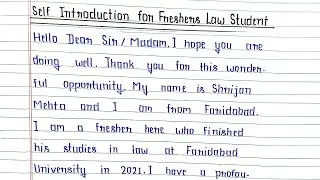 Self Introduction for Freshers Law Student
Hello Dear Sir/Madam. I hope you are
doing well. Thank you for this wonder-
ful opportunity. My name is Shrijan
Mehta and I am from Faridabad.
I am a fresher here who finished
his studies in law at Faridabad
University in 2021. I have a profou-